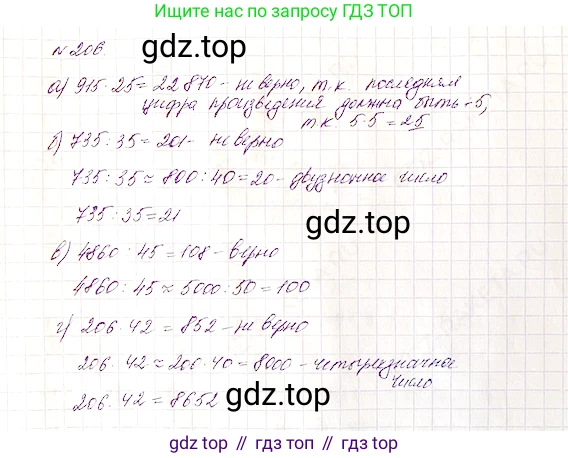 Ищите нас по запросу ГДЗ ТОП
№ 206
gdz.top
а) 915 · 25 = 22 870 - не верно, т.к. последняя
цифра произведения должна быть - 5,
т.к 5·5 = 25
б) 735 : 35 = 201 - не верно
735 : 35 ≈ 800 : 40 = 20 - двузначное число
735 : 35 = 21
gdz.top
в) 4860 : 45 = 108 - верно
4860 : 45 ≈ 5000 : 50 = 100
г) 206 · 42 = 852 - не верно
206 · 42 ≈ 200 · 40 = 8000 - четырехзначное
число
206 · 42 = 8652
gdz.top
gdz.top // гдз топ // gdz.top